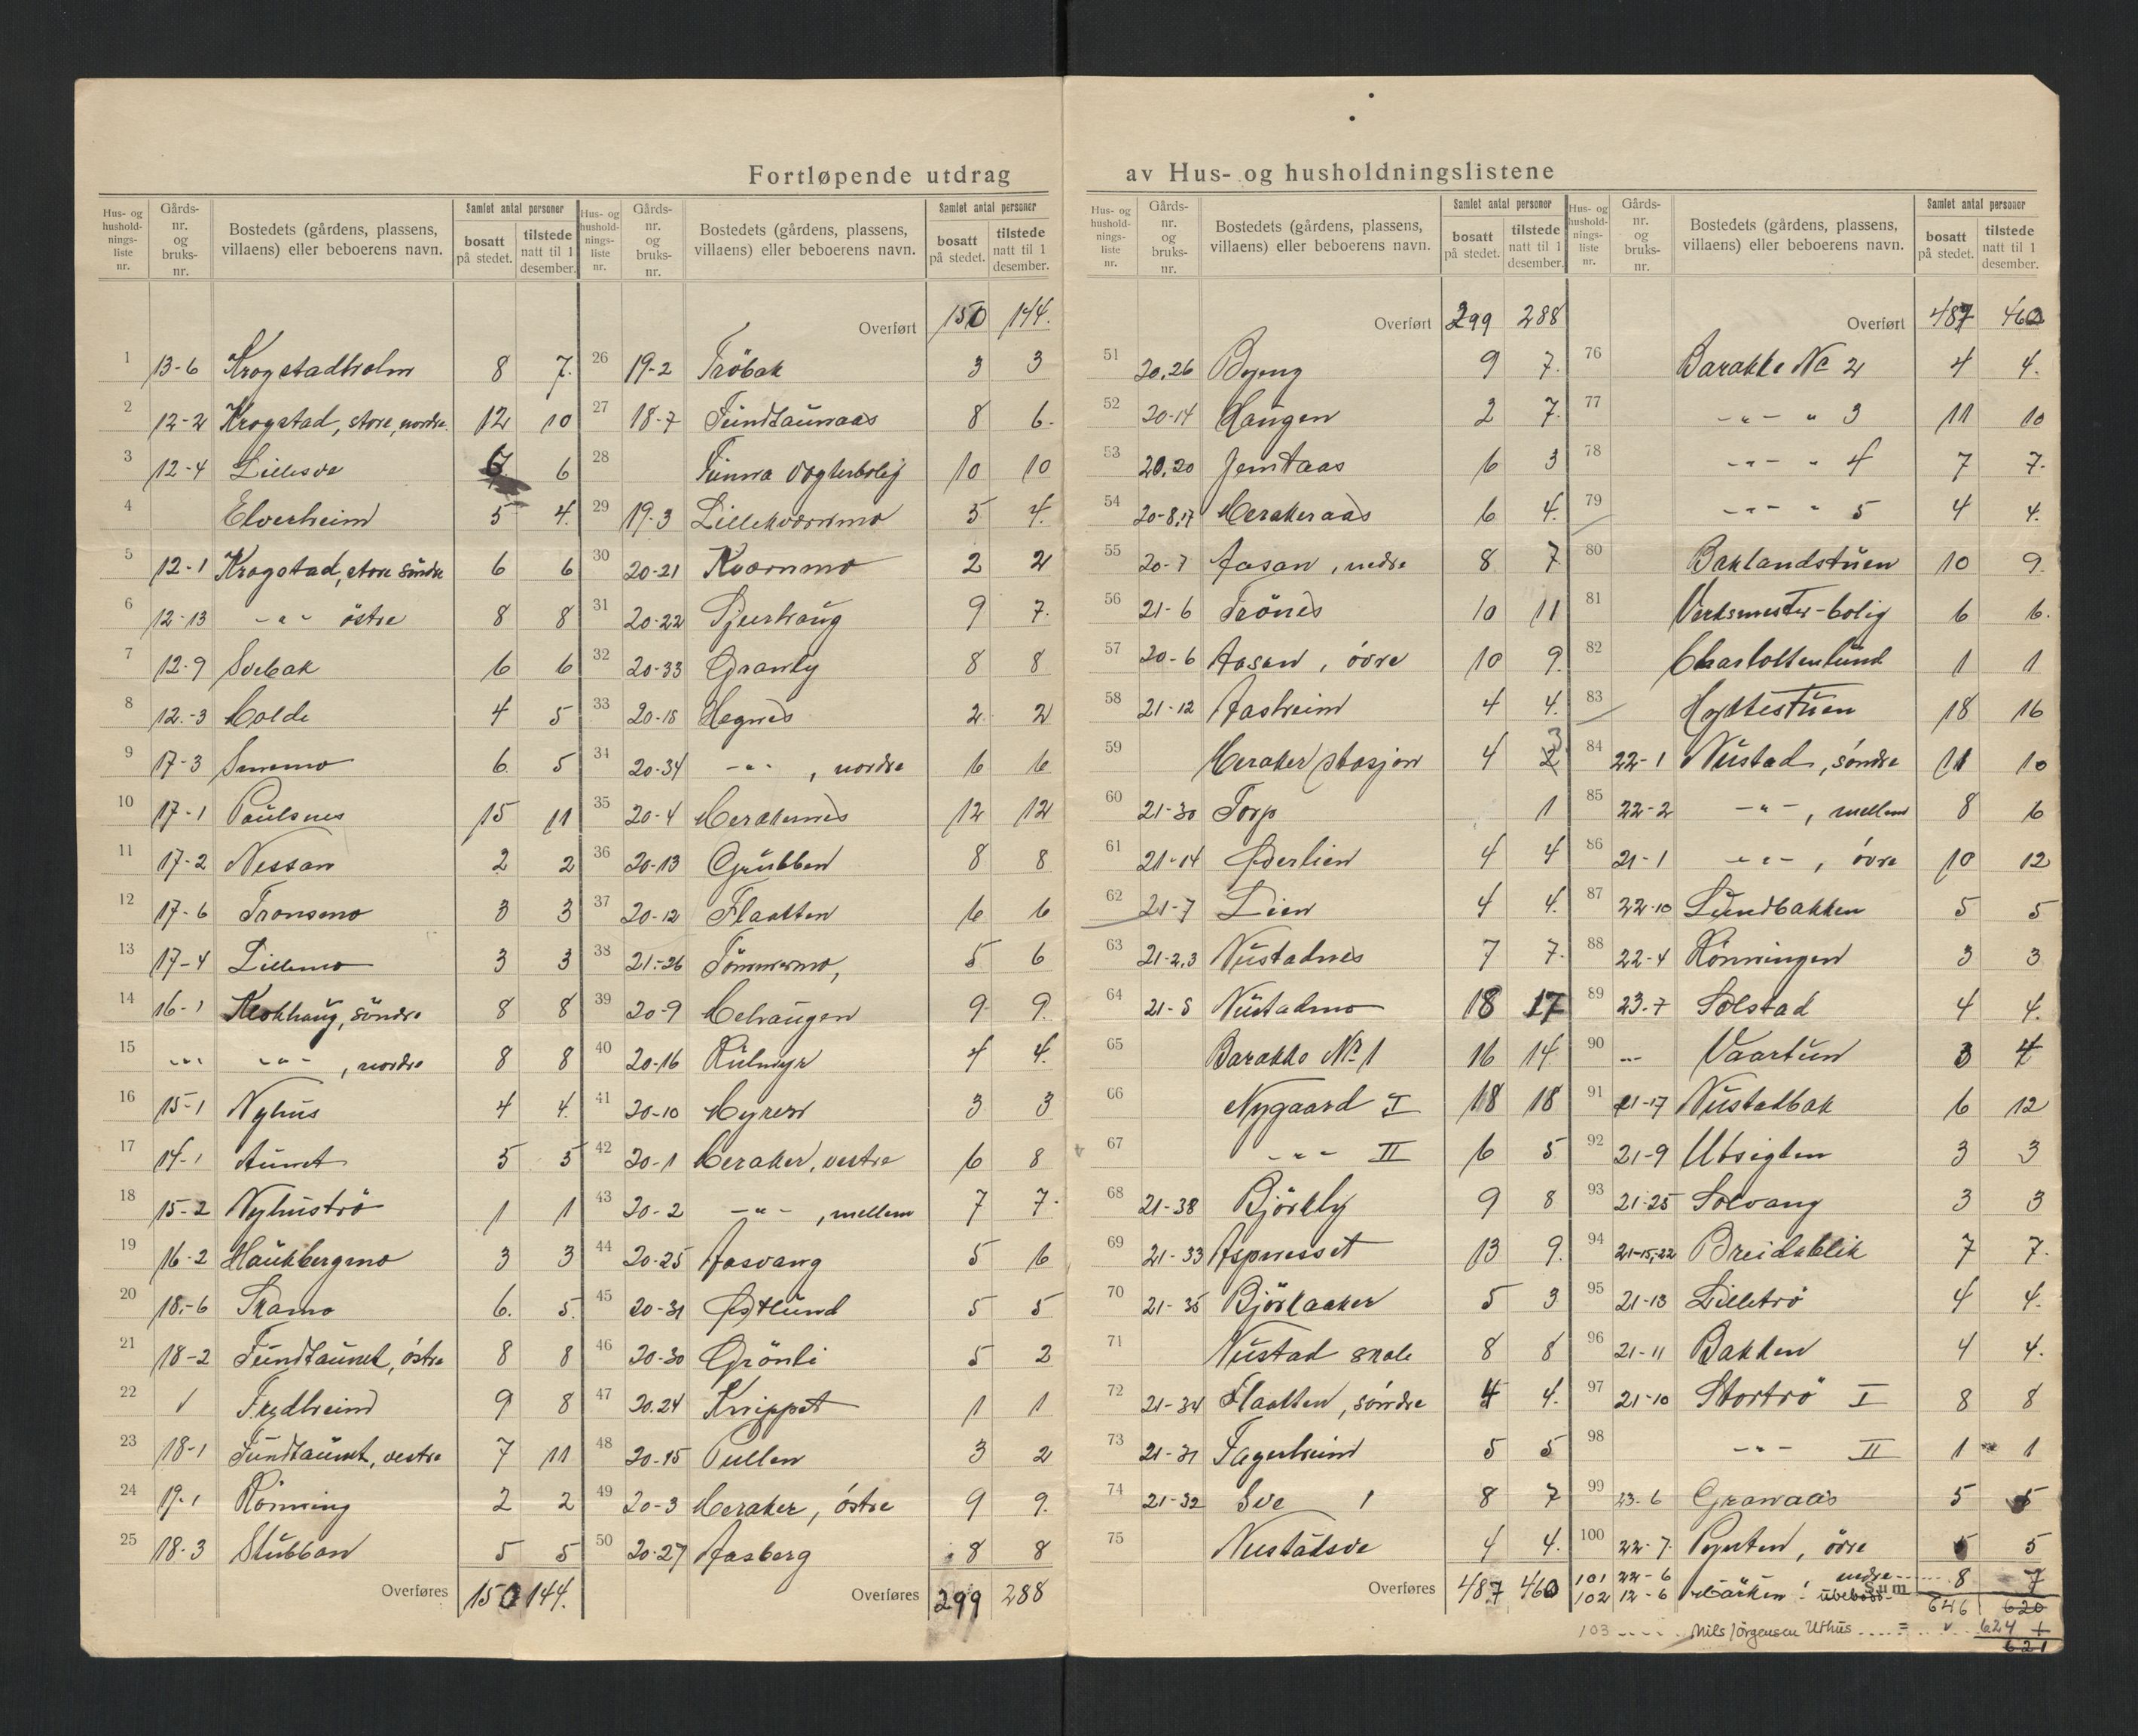 Fortløpende utdrag av Hus- og husholdningslistene
Hus- og husholdningsliste nr. | Gårds-nr. og bruks-nr. | Bostedets (gårdens, plassens, villaens) eller beboerens navn. | Samlet antal personer: bosatt på stedet. | tilstede natt til 1 desember.
1 13-6 Krogstadholm 8 7.
2 12-2 Krogstad, store, nordre 12 10
3 12-4 Lillesve 6
4 Elverheim 5 4.
5 12-1 Krogstad, store söndre 6 6
6 12-13 -"- östre 8 8
7 12-9 Svebak 6 6
8 12-3 Molde 4 5
9 17-3 Smemo 6. 5
10 17-1 Paulsnes 15 11
11 17-2 Nessan 2 2
12 17-6 Tronsmo 3 3
13 17-4 Lillemo 3 3
14 16-1 Klokhaug, söndre 8 8
15 -"- -"-, nordre 8 8
16 15-1 Nyhus 4 4.
17 14-1 Aunet 5 5
18 15-2 Nyhuströ 1 1
19 16-2 Haukbergmo 3 3
20 18-6 Stamo 6. 5.
21 18-2 Fundtaunet, östre 8 8
22 Frydheim 9 8
23 18-1 Fundtaunet, vestre 7 11
24 19-1 Rönning 2 2
25 18-3 Stubban 5 5
Overføres 150 144.
Hus- og husholdningsliste nr. | Gårds-nr. og bruks-nr. | Bostedets (gårdens, plassens, villaens) eller beboerens navn. | Samlet antal personer: bosatt på stedet. | tilstede natt til 1 desember.
Overført 150 144.
26 19-2 Fröbak 3 3
27 18-7 Fundtaunaas 8 6.
28 Funna Vogterbolig 10 10
29 19-3 Lillekvernmo 5 4.
30 20-21 Kvernmo 2 2
31 20-22 Gjerhaug 9 7.
32 20-33 Granly 8 8
33 20-18 Hegnes 2 2
34 20-34 -"-, nordre 6 6
35 20-4 Merakernes 12 12
36 20-13 Grubben 8 8
37 20-12 Flaatten 6 6
38 21-26 Tömmermo, 5 6
39 20-9 Mehaugen 9 9.
40 20-16 Kulmyr 4 4.
41 20-10 Myren 3 3
42 20-1 Meraker, vestre 6 8
43 20-2 -"-, mellem 7 7.
44 20-25 Aasvang 5 6
45 20-31 Østlund 5 5
46 20-30 Grönli 5 2
47 20.24 Knippet 1 1
48 20-15 Pullen 3 2
49 20-3 Meraker, östre 9 9.
50 20-27 Aasberg 8 8
Overføres 299 288
Hus- og husholdningsliste nr. | Gårds-nr. og bruks-nr. | Bostedets (gårdens, plassens, villaens) eller beboerens navn. | Samlet antal personer: bosatt på stedet. | tilstede natt til 1 desember.
Overført 299 288
51 20.26 9 7.
52 20-14 Haugen 2 7.
53 20.20 Jemtaas 6 3
54 20-8,17 Merakeraas 6 4.
55 20-7 Aasan, nedre 8 7
56 21-6 Trönes 10 11
57 20-6 Aasan, övre 10 9.
58 21-12 Aasheim 4 4.
59 Meraker stasjon 4 3
60 21-30 Torp 1
61 21-14 Øderlien 4 4
62 21-7 Lien 4 4.
63 21-2,3 Nustadnes 7 7.
64 21-5 Nustadmo 18 17
65 Barakke No 1 16 14.
66 Nygaard I 18 18
67 -"- II 6 5
68 21-38 Björkly 9 8
69 21-33 Aspnesset 13 9.
70 21-35 Björkaaker 5 3
71 Nustad skole 8 8
72 21-34 Flaatten, söndre 4 4.
73 21-31 Fagerheim 5 5
74 21-32 Sve 1 8 7
75 Nustadsve 4 4.
Overføres 487 460
Hus- og husholdningsliste nr. | Gårds-nr. og bruks-nr. | Bostedets (gårdens, plassens, villaens) eller beboerens navn. | Samlet antal personer: bosatt på stedet. | tilstede natt til 1 desember.
Overført 487 460
76 Barakke No 2 4 4.
77 -"- " 3 11 10
78 -"- " 4 7 7.
79 -"- " 5 4 4.
80 Baklandstuen 10 9.
81 Verksmester-bolig 6 6.
82 Charlottenlund 1 1
83 Hyttestuen 18 16
84 22-1 Nustad, söndre 11 10
85 22-2 -"-, mellem 8 6
86 21-1 -"-, övre 10 12
87 22-10 Lundbakken 5 5
88 22-4 Rönningen 3 3
89 23-7 Solstad 4 4.
90 -"- Vaartun 3 4
91 21-17 Nustadbak 6 12
92 21-9 Utsigten 3 3
93 21-25 Solvang 3 3
94 21-15,22 Breidablik 7 7.
95 21-13 Lilletrö 4 4.
96 21-11 Bakken 4 4.
97 21-10 Stortrö I 8 8
98 -"- II 1 1
99 23-6 Granaas 5 5
100 22-7. övre 5
101 22-6 -"- nedre 8 7
102 12-6 ubebodd Sum 646 620
103 Nils Jörgensen Uthus = 624 +
621